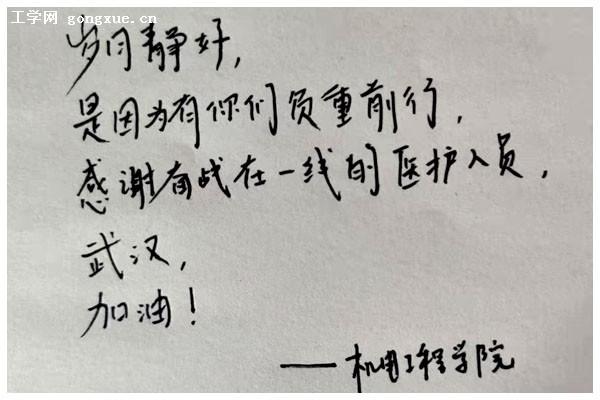 工学网 gongxue.cn
岁月静好，
是因为有你们负重前行，
感谢奋战在一线的医护人员，
武汉，
加油！
——机电工程学院